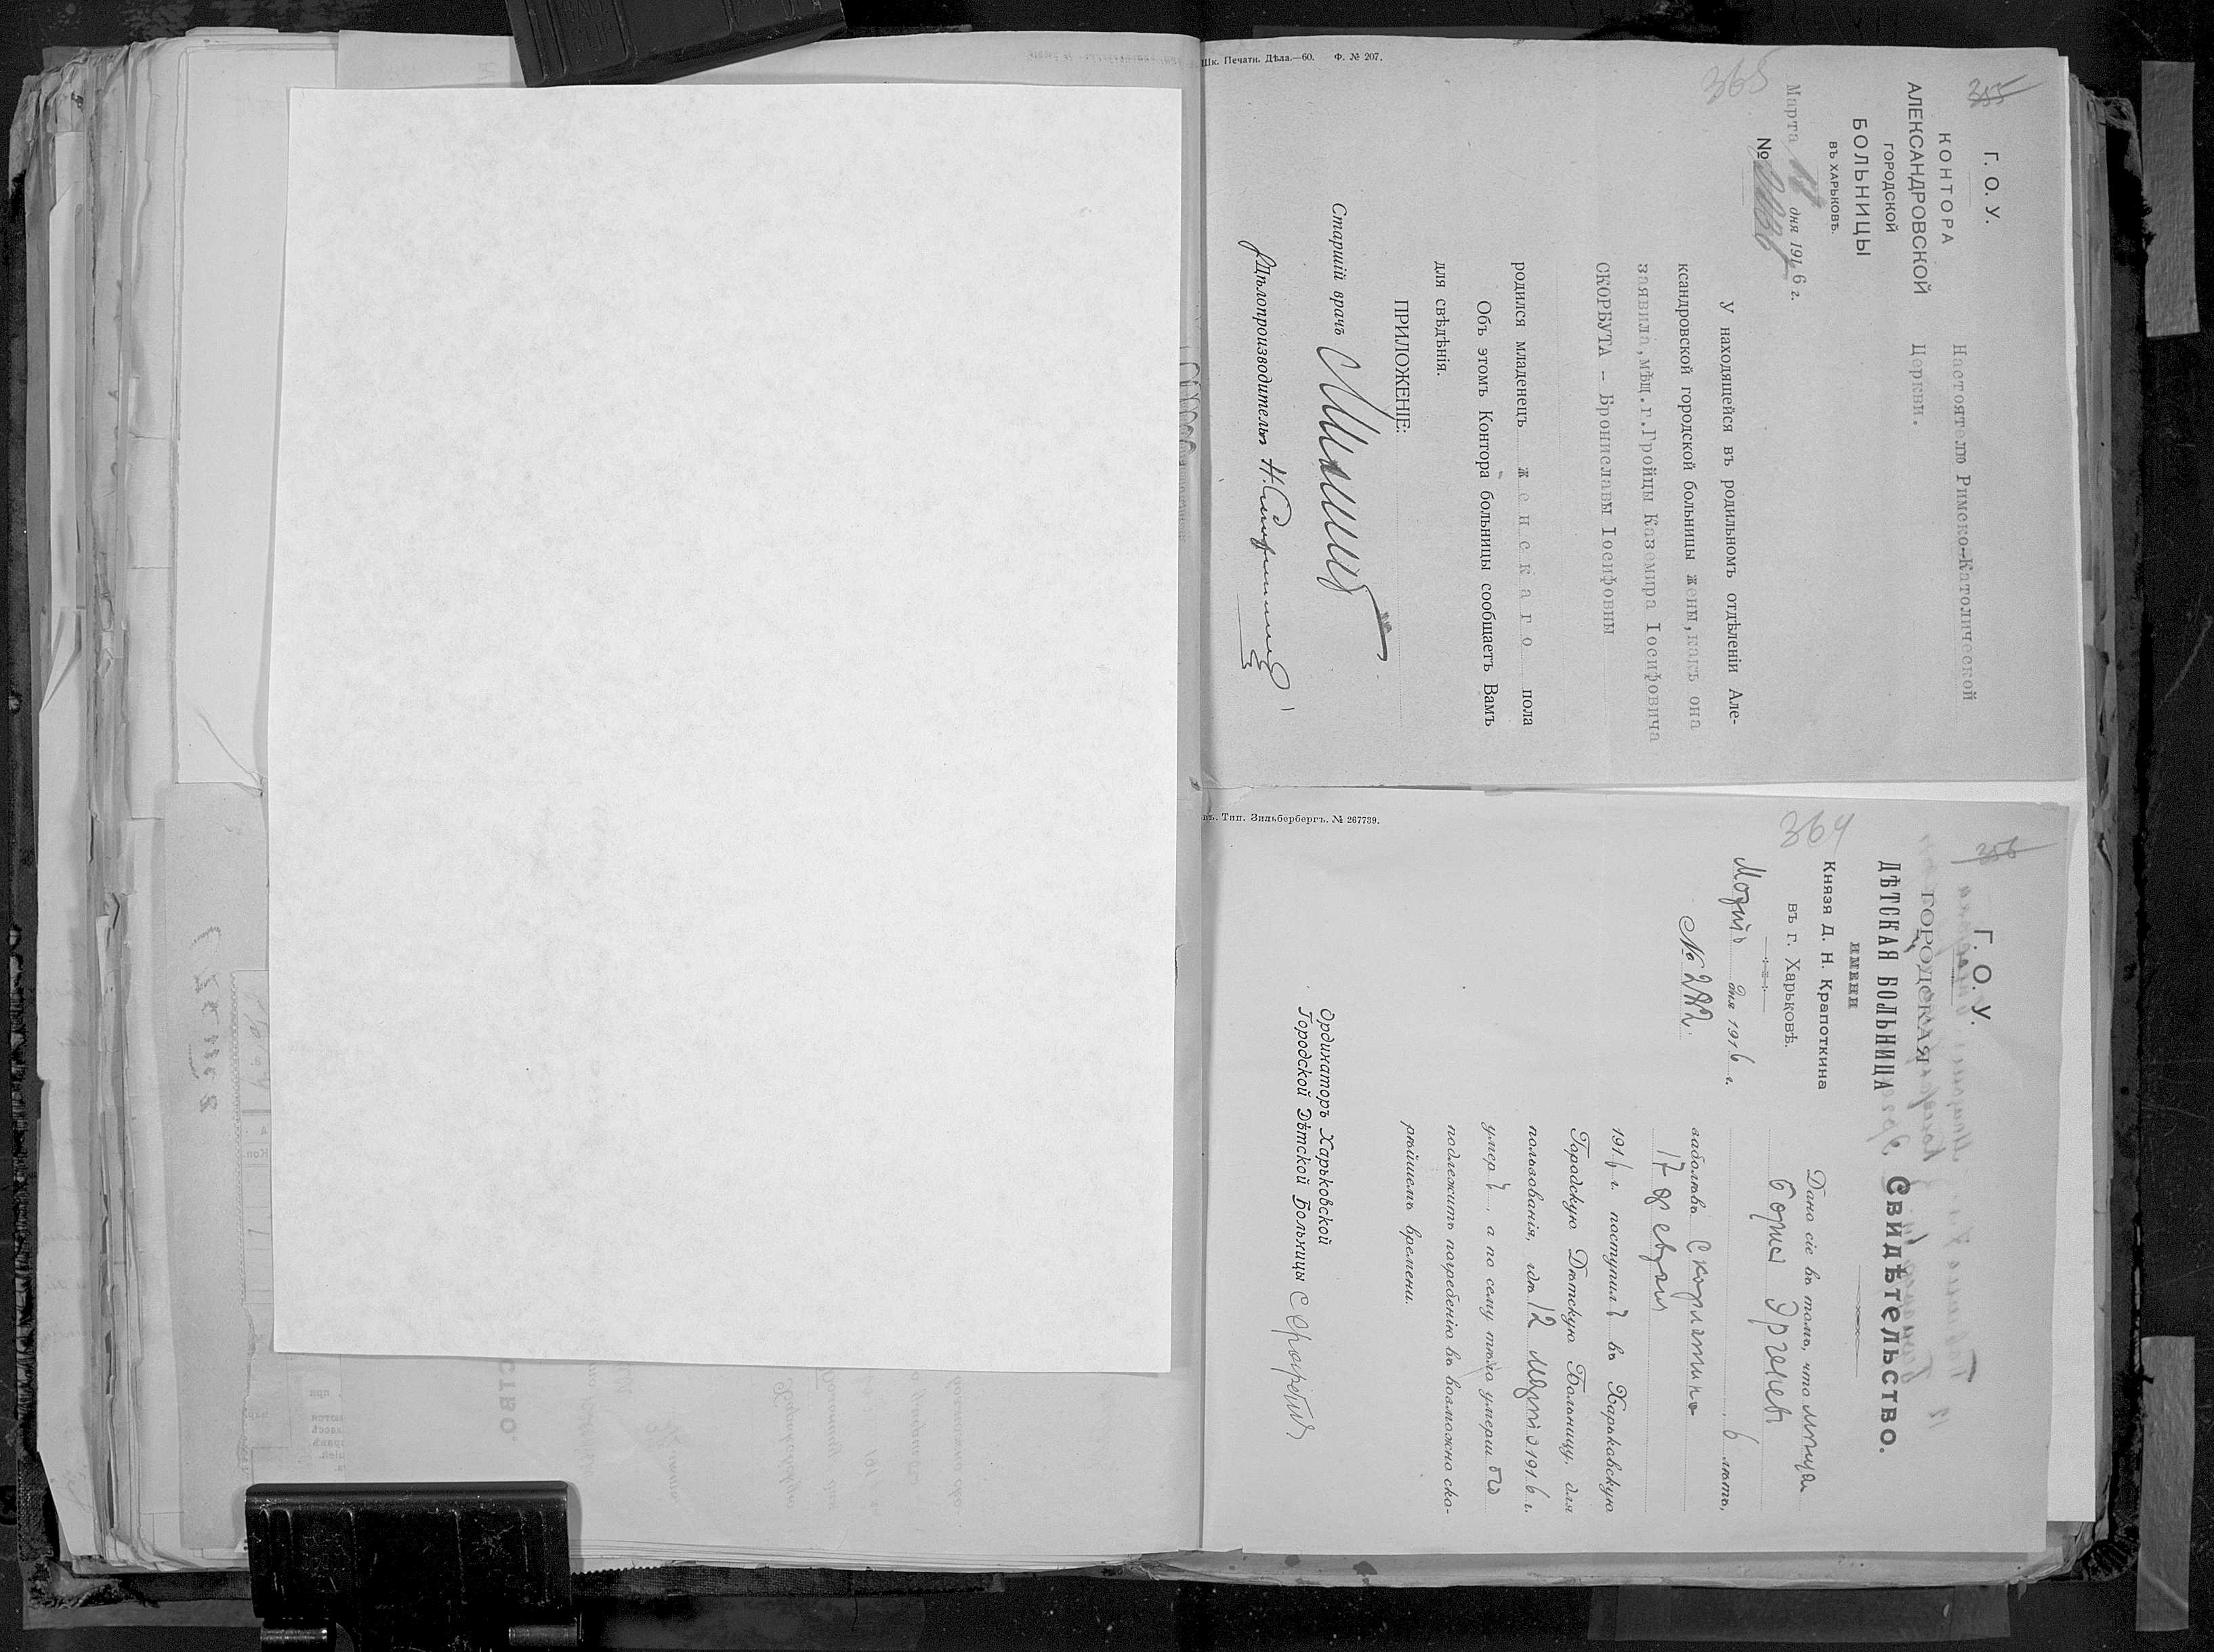 Шк. Печатн. Дѣла.—60. Ф. № 207.
365
Г. О. У.
КОНТОРА
АЛЕКСАНДРОВСКОЙ
ГОРОДСКОЙ
БОЛЬНИЦЫ
ВЪ ХАРЬКОВѢ.
Марта дня 1916 г.
№
Настоятелю Римско-Католической
Церкви.
У находящейся въ родильномъ отдѣленіи Але-
ксандровской городской больницы жены, какъ она
заявила, мѣщ. г. Гройцы Каземира Іосифовича
СКОРБУТА – Брониславы Іосифовны
родился младенецъ женскаго пола
Объ этомъ Контора больницы сообщаетъ Вамъ
для свѣдѣнія.
ПРИЛОЖЕНІЕ:
Старшій врачъ
Дѣлопроизводитель
въ. Тип. Зильбербергъ. № 267789.
364
Г. О. У.
ГОРОДСКАЯ
ДѢТСКАЯ БОЛЬНИЦА
ИМЕНИ
Князя Д. Н. Крапоткина
въ г. Харьковѣ.
дня 1916 г.
№ 282.
Свидѣтельство.
Дано сіе въ томъ, что
Борисъ Эргенев
6 лѣтъ,
заболѣвъ Скарлатиной
17 феврал
1916 г. поступилъ въ Харьковскую
Городскую Дѣтскую Больницу, для
пользованія, гдѣ 12 Марта 1916 г.
умеръ, а по сему тѣло умершаго
подлежитъ погребенію въ возможно ско-
рѣйшемъ времени.
Ординаторъ Харьковской
Городской Дѣтской Больницы